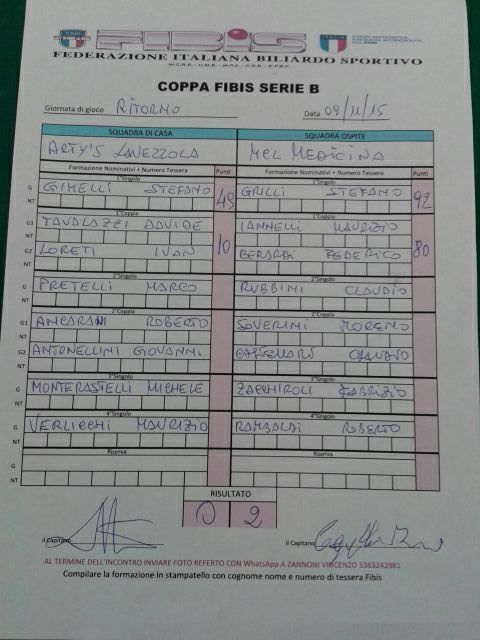 CONI
FIBIS
ITALIA
FEDERAZIONE ITALIANA BILIARDO SPORTIVO
COPPA FIBIS SERIE B
Giornata di gioco RITORNO Data 09/11/15
SQUADRA DI CASA SQUADRA OSPITE
ARTY'S LAVEZZOLA MEL MEDICINA
Formazione Nominativi + Numero Tessera Punti Formazione Nominativi + Numero Tessera Punti
1°Singolo 1°Singolo
G GIMELLI STEFANO 49 GRILLI STEFANO 92
NT
1°Coppia 1°Coppia
G1 TAVALAZZI DAVIDE 10 IANNELLI MAURIZIO 80
NT
G2 LORETI IVAN BERARDI FEDERICO
NT
2°Singolo 2°Singolo
G PRETELLI MARCO RUBBINI CLAUDIO
NT
2°Coppia 2°Coppia
G1 ANCARANI ROBERTO SOVERINI MORENO
NT
G2 ANTONELLINI GIOVANNI CLAUDIO
NT
3°Singolo 3°Singolo
G MONTERASTELLI MICHELE ZACCHIROLI FABRIZIO
NT
4°Singolo 4°Singolo
G VERLICCHI MAURIZIO RAMBALDI ROBERTO
NT
Riserva Riserva
G
NT
RISULTATO
0 2
Il Capitano Il Capitano
AL TERMINE DELL'INCONTRO INVIARE FOTO REFERTO CON WhatsApp A ZANNONI VINCENZO 3383242981
Compilare la formazione in stampatello con cognome nome e numero di tessera Fibis